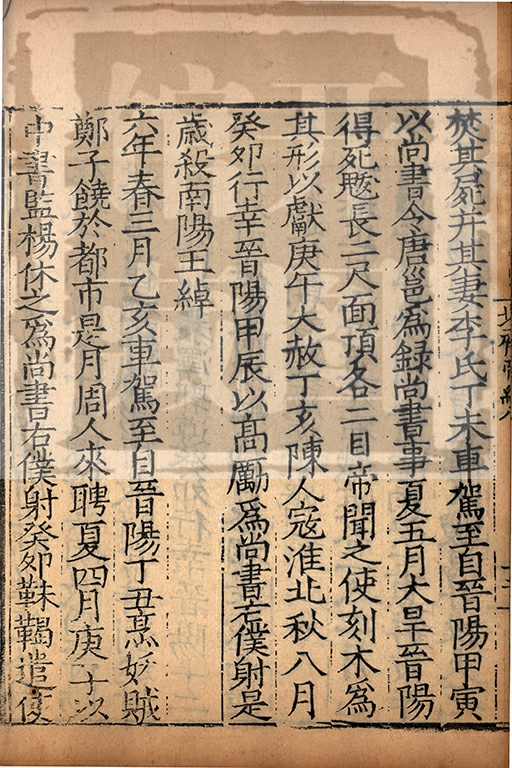 焚其屍并其妻李氏丁未車駕至自晉陽甲寅
以尚書令唐邕爲録尚書事夏五月大旱晉陽
得死魃長二尺面頂各二目帝聞之使刻木爲
其形以獻庚午大赦丁亥陳人寇淮北秋八月
癸卯行幸晉陽甲辰以高勵爲尚書右僕射是
歲殺南陽王綽
六年春三月乙亥車駕至自晉陽丁丑烹妖賊
鄭子饒於都市是月周人來聘夏四月庚子以
中書監楊休之爲尚書右僕射癸卯靺鞨遣使